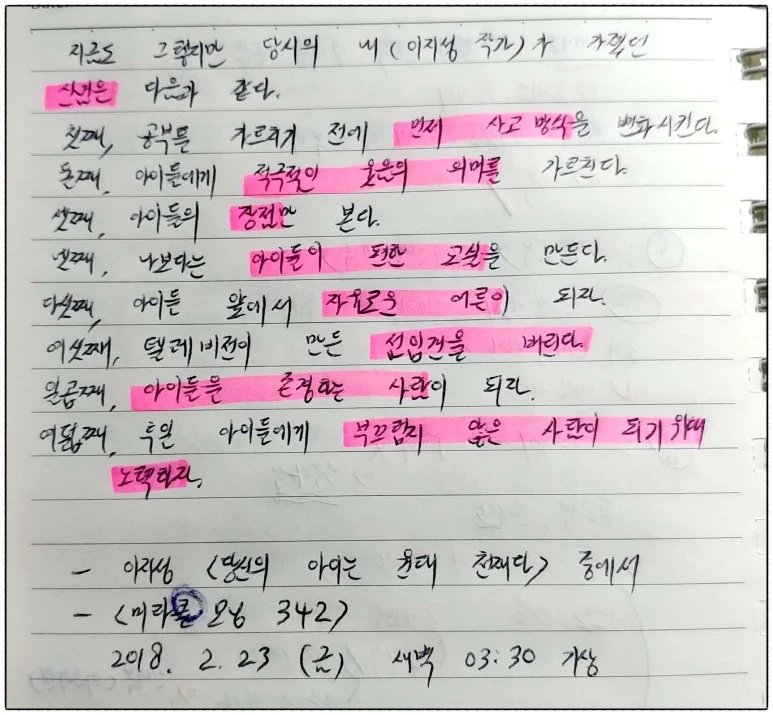 지금도 그렇지만 당시의 내(이지성 작가)가 가졌던
신념은 다음과 같다.
첫째, 공부를 가르치기 전에 먼저 사고 방식을 변화시킨다.
둘째, 아이들에게 적극적인 웃음의 의미를 가르친다.
셋째, 아이들의 장점만 본다.
넷째, 나보다는 아이들이 편한 교실을 만든다.
다섯째, 아이들 앞에서 자유로운 어른이 되자.
여섯째, 텔레비전이 만든 선입견을 버린다.
일곱째, 아이들을 존경하는 사람이 되자.
여덟째, 훗날 아이들에게 부끄럽지 않은 사람이 되기 위해
노력하자.
- 이지성 <당신의 아이는 원래 천재다> 중에서
- <미라클 모닝 342>
2018. 2. 23 (금) 새벽 03:30 기상